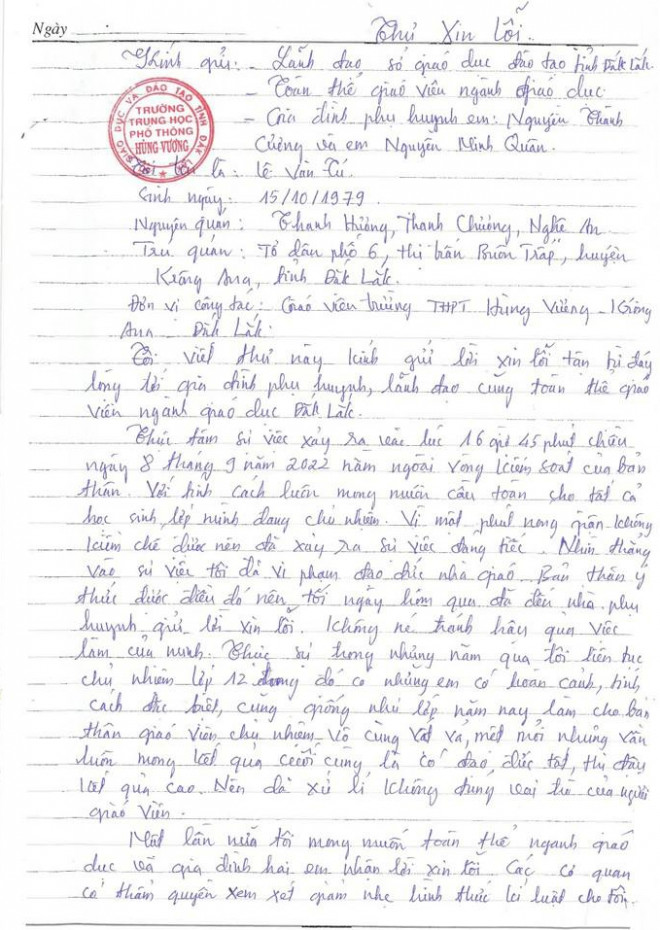 Ngày
Thư xin lỗi.
Kính gửi: - Lãnh đạo sở giáo dục đào tạo tỉnh Đắk Lắk.
- Toàn thể giáo viên ngành giáo dục.
- Gia đình phụ huynh em: Nguyễn Thành
Cường và em Nguyễn Minh Quân.
SỞ GIÁO DỤC VÀ ĐÀO TẠO TỈNH ĐẮK LẮK
TRƯỜNG
TRUNG HỌC
PHỔ THÔNG
HÙNG VƯƠNG
Tôi tên là: Lê Văn Tú
Sinh ngày: 15/10/1979
Nguyên quán: Thanh Hương, Thanh Chương, Nghệ An
Trú quán: Tổ dân phố 6, thị trấn Buôn Trấp, huyện
Krông Ana, tỉnh Đắk Lắk.
Đơn vị công tác: Giáo viên trường THPT Hùng Vương - Krông
Ana - Đắk Lắk.
Tôi viết thư này kính gửi lời xin lỗi tận từ đáy
lòng tới gia đình phụ huynh, lãnh đạo cùng toàn thể giáo
viên ngành giáo dục Đắk Lắk.
Thực tâm sự việc xảy ra vào lúc 16 giờ 45 phút chiều
ngày 8 tháng 9 năm 2022 nằm ngoài vòng kiểm soát của bản
thân. Với tính cách luôn mong muốn cầu toàn cho tất cả
học sinh lớp mình đang chủ nhiệm. Vì một phút nóng giận không
kiềm chế được nên đã xảy ra sự việc đáng tiếc. Nhìn thẳng
vào sự việc tôi đã vi phạm đạo đức nhà giáo. Bản thân ý
thức được điều đó nên tối ngày hôm qua đã đến nhà phụ
huynh gửi lời xin lỗi. Không né tránh hậu quả việc
làm của mình. Thực sự trong những năm qua tôi liên tục
chủ nhiệm lớp 12 trong đó có những em có hoàn cảnh, tính
cách đặc biệt, cũng giống như lớp năm nay làm cho bản
thân giáo viên chủ nhiệm vô cùng vất vả, mệt mỏi nhưng vẫn
luôn mong kết quả cuối cùng là có đạo đức tốt, thi đậu
kết quả cao. Nên đã xử lí không đúng vai trò của người
giáo viên.
Một lần nữa tôi mong muốn toàn thể ngành giáo
dục và gia đình hai em nhận lời xin lỗi. Các cơ quan
có thẩm quyền xem xét giảm nhẹ hình thức kỉ luật cho tôi.